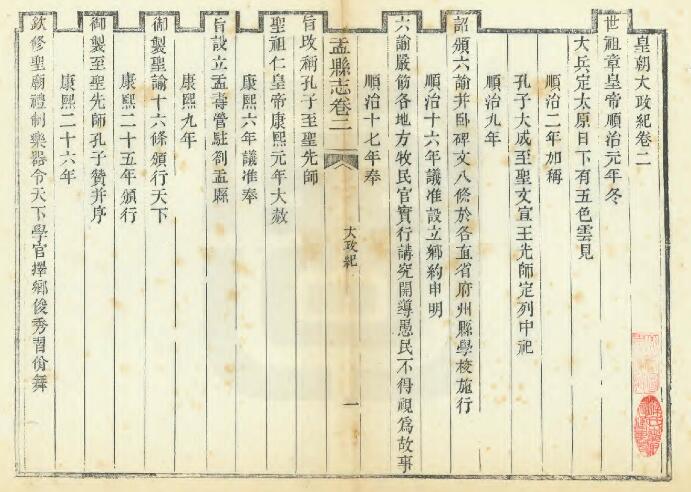 皇朝大政紀卷二
世祖章皇帝順治元年冬
大兵定太原日下有五色雲見
順治二年加稱
孔子大成至聖文宣王先師定列中祀
順治九年
詔頒六諭并卧碑文八條於各直省府州縣學校施行
順治十六年議准設立鄉約申明
六諭嚴飭各地方牧民官實行講究開導愚民不得視爲故事
順治十七年奉
盂縣志卷二
大政紀
一
旨改稱孔子至聖先師
聖祖仁皇帝康熙元年大赦
康熙六年議准奉
旨設立盂壽營駐劄盂縣
康熙九年
御製聖諭十六條頒行天下
康熙二十五年頒行
御製至聖先師孔子贊并序
康熙二十六年
欽修聖廟禮制樂器令天下學官擇鄉俊秀習佾舞